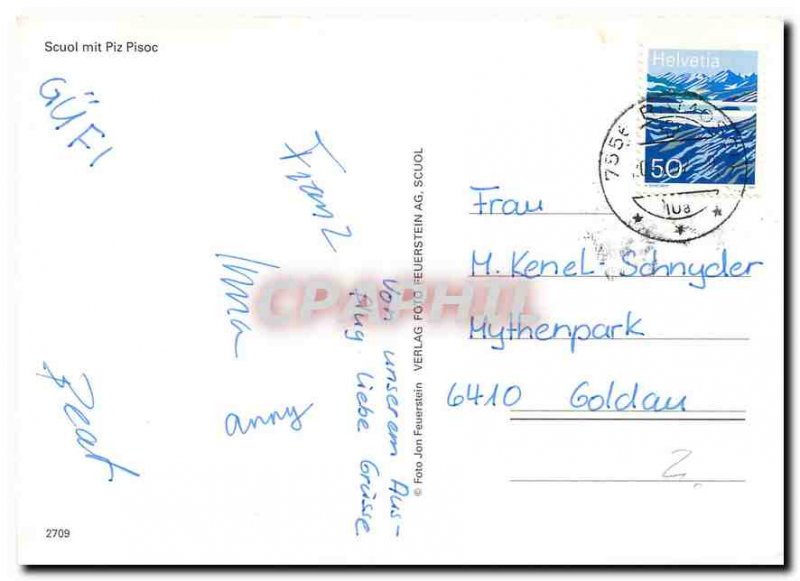 Scuol mit Piz Pisoc
GÜFI
Franz
Irma
anny
Beat
Von unserem Aus-
flug liebe Grüsse
2709
© Foto Jon Feuerstein VERLAG FOTO FEUERSTEIN AG, SCUOL
CPAPHIL
Helvetia
50
Frau
M. Kenel-Schnyder
Mythenpark
6410 Goldau
2.